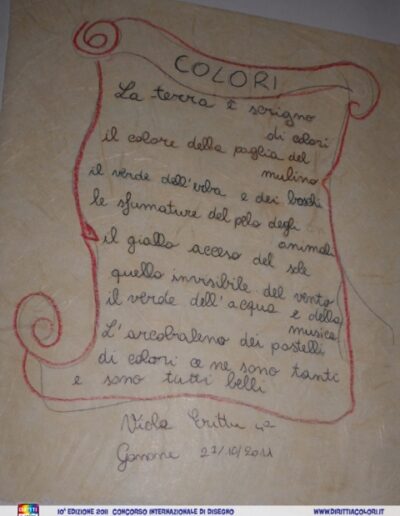 COLORI
La terra è scrigno
di colori
il colore della paglia del
mulino
il verde dell'erba e dei boschi
le sfumature del pelo degli
animali
il giallo acceso del sole
quello invisibile del vento
il verde dell'acqua e della
musica
L'arcobaleno dei pastelli
di colori ce ne sono tanti
e sono tutti belli
Viola 4ª
10ª EDIZIONE 2011 CONCORSO INTERNAZIONALE DI DISEGNO
WWW.DIRITTIACOLORI.IT